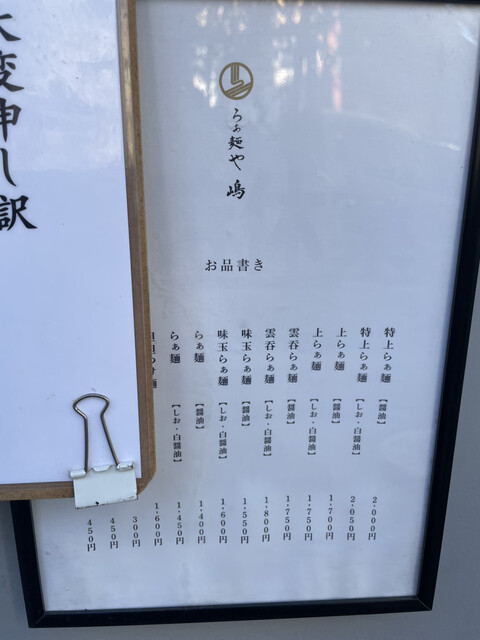 大変申し訳
らぁ麺や 嶋
お品書き
特上らぁ麺 【醤油】 2,000円
特上らぁ麺 【しお・白醤油】 2,050円
上らぁ麺 【醤油】 1,700円
上らぁ麺 【しお・白醤油】 1,750円
雲呑らぁ麺 【醤油】 1,750円
雲呑らぁ麺 【しお・白醤油】 1,800円
味玉らぁ麺 【醤油】 1,550円
味玉らぁ麺 【しお・白醤油】 1,600円
らぁ麺 【醤油】 1,400円
らぁ麺 【しお・白醤油】 1,450円
1,600円
300円
450円
450円